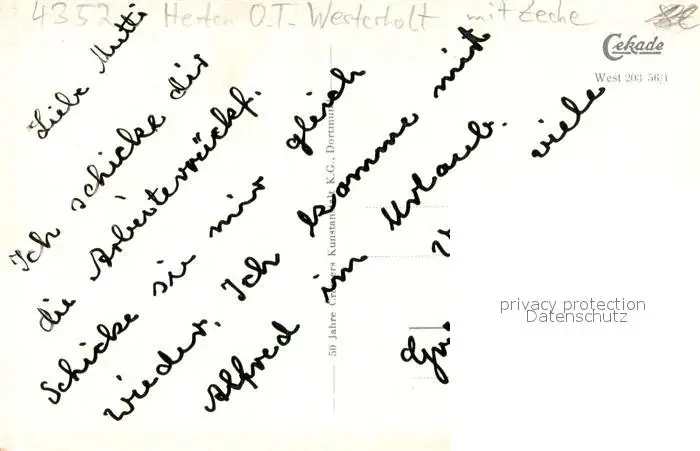 4352 Herten O.T. Westerholt mit Zeche
Cekade
West 203 56/1
Liebe Mutti
Ich schicke dir
die Arbeiterrückf.
Schicke sie mir gleich
wieder. Ich komme mit
Alfred im Urlaub. viele
50 Jahre Cramers Kunstanstalt K.G., Dortmund
privacy protection
Datenschutz